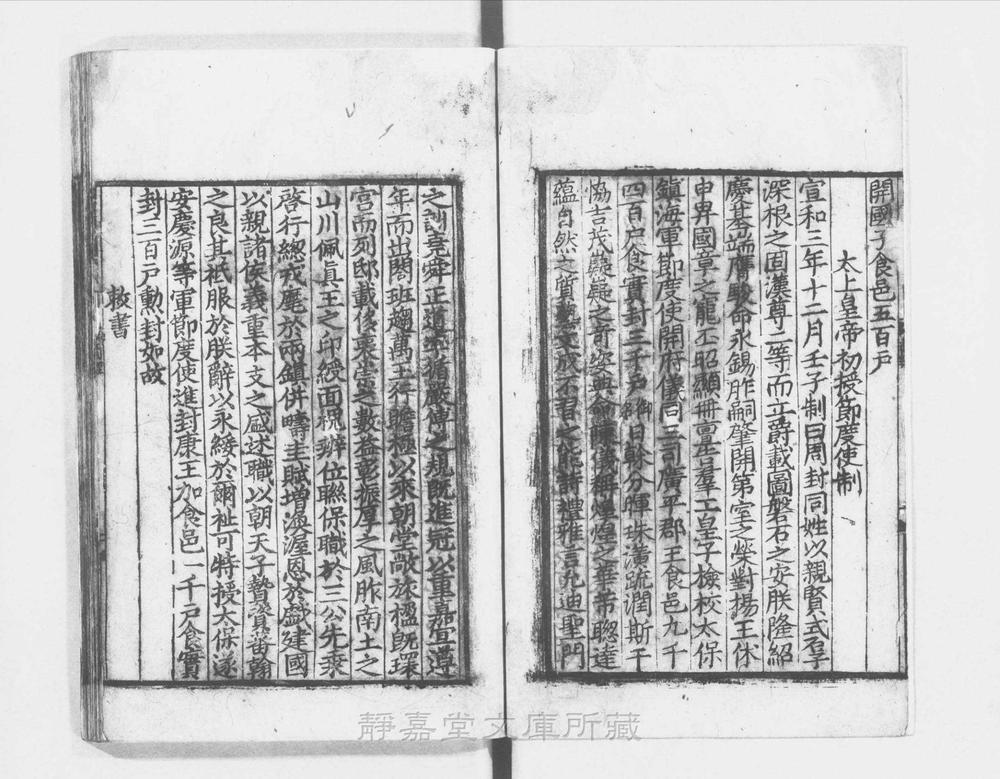 開國子食邑五百戸
太上皇帝初授節度使制
宣和三年十二月壬子制曰周封同姓以親賢式孚
深根之固漢尊二等而立爵載圖磐石之安朕隆紹
慶基端膺駿命永錫胙嗣肇開第室之榮對揚王休
申畀國章之寵丕昭顯冊亶告羣工皇子檢校太保
鎮海軍節度使開府儀同三司廣平郡王食邑九千
四百戸食實封三千戸御名日躰分暉珠潢疏潤斯干
協吉茂嶷嶷之奇姿典命陳儀稱煌煌之華芾聦達
蘊自然之質藝文成不習之能詩禮雅言允迪聖門
之訓堯舜正道率循嚴傅之規既進冠以重嘉宣遵
年而出閤班趨萬玉行瞻極以來朝堂敞旅楹既環
宫而列邸載侈褒崇之數益彰振厚之風胙南土之
山川佩真王之印綬面槐辨位聮保職於三公先乘
啓行總戎麾於兩鎮併疇圭賦增渙渥恩於戯建國
以親諸侯義重本支之盛述職以朝天子贄資蕃翰
之良其袛服於朕辭以永綏於爾祉可特授太保遂
安慶源等軍節度使進封康王加食邑一千戸食實
封三百戸勲封如故
赦書
靜嘉堂文庫所藏